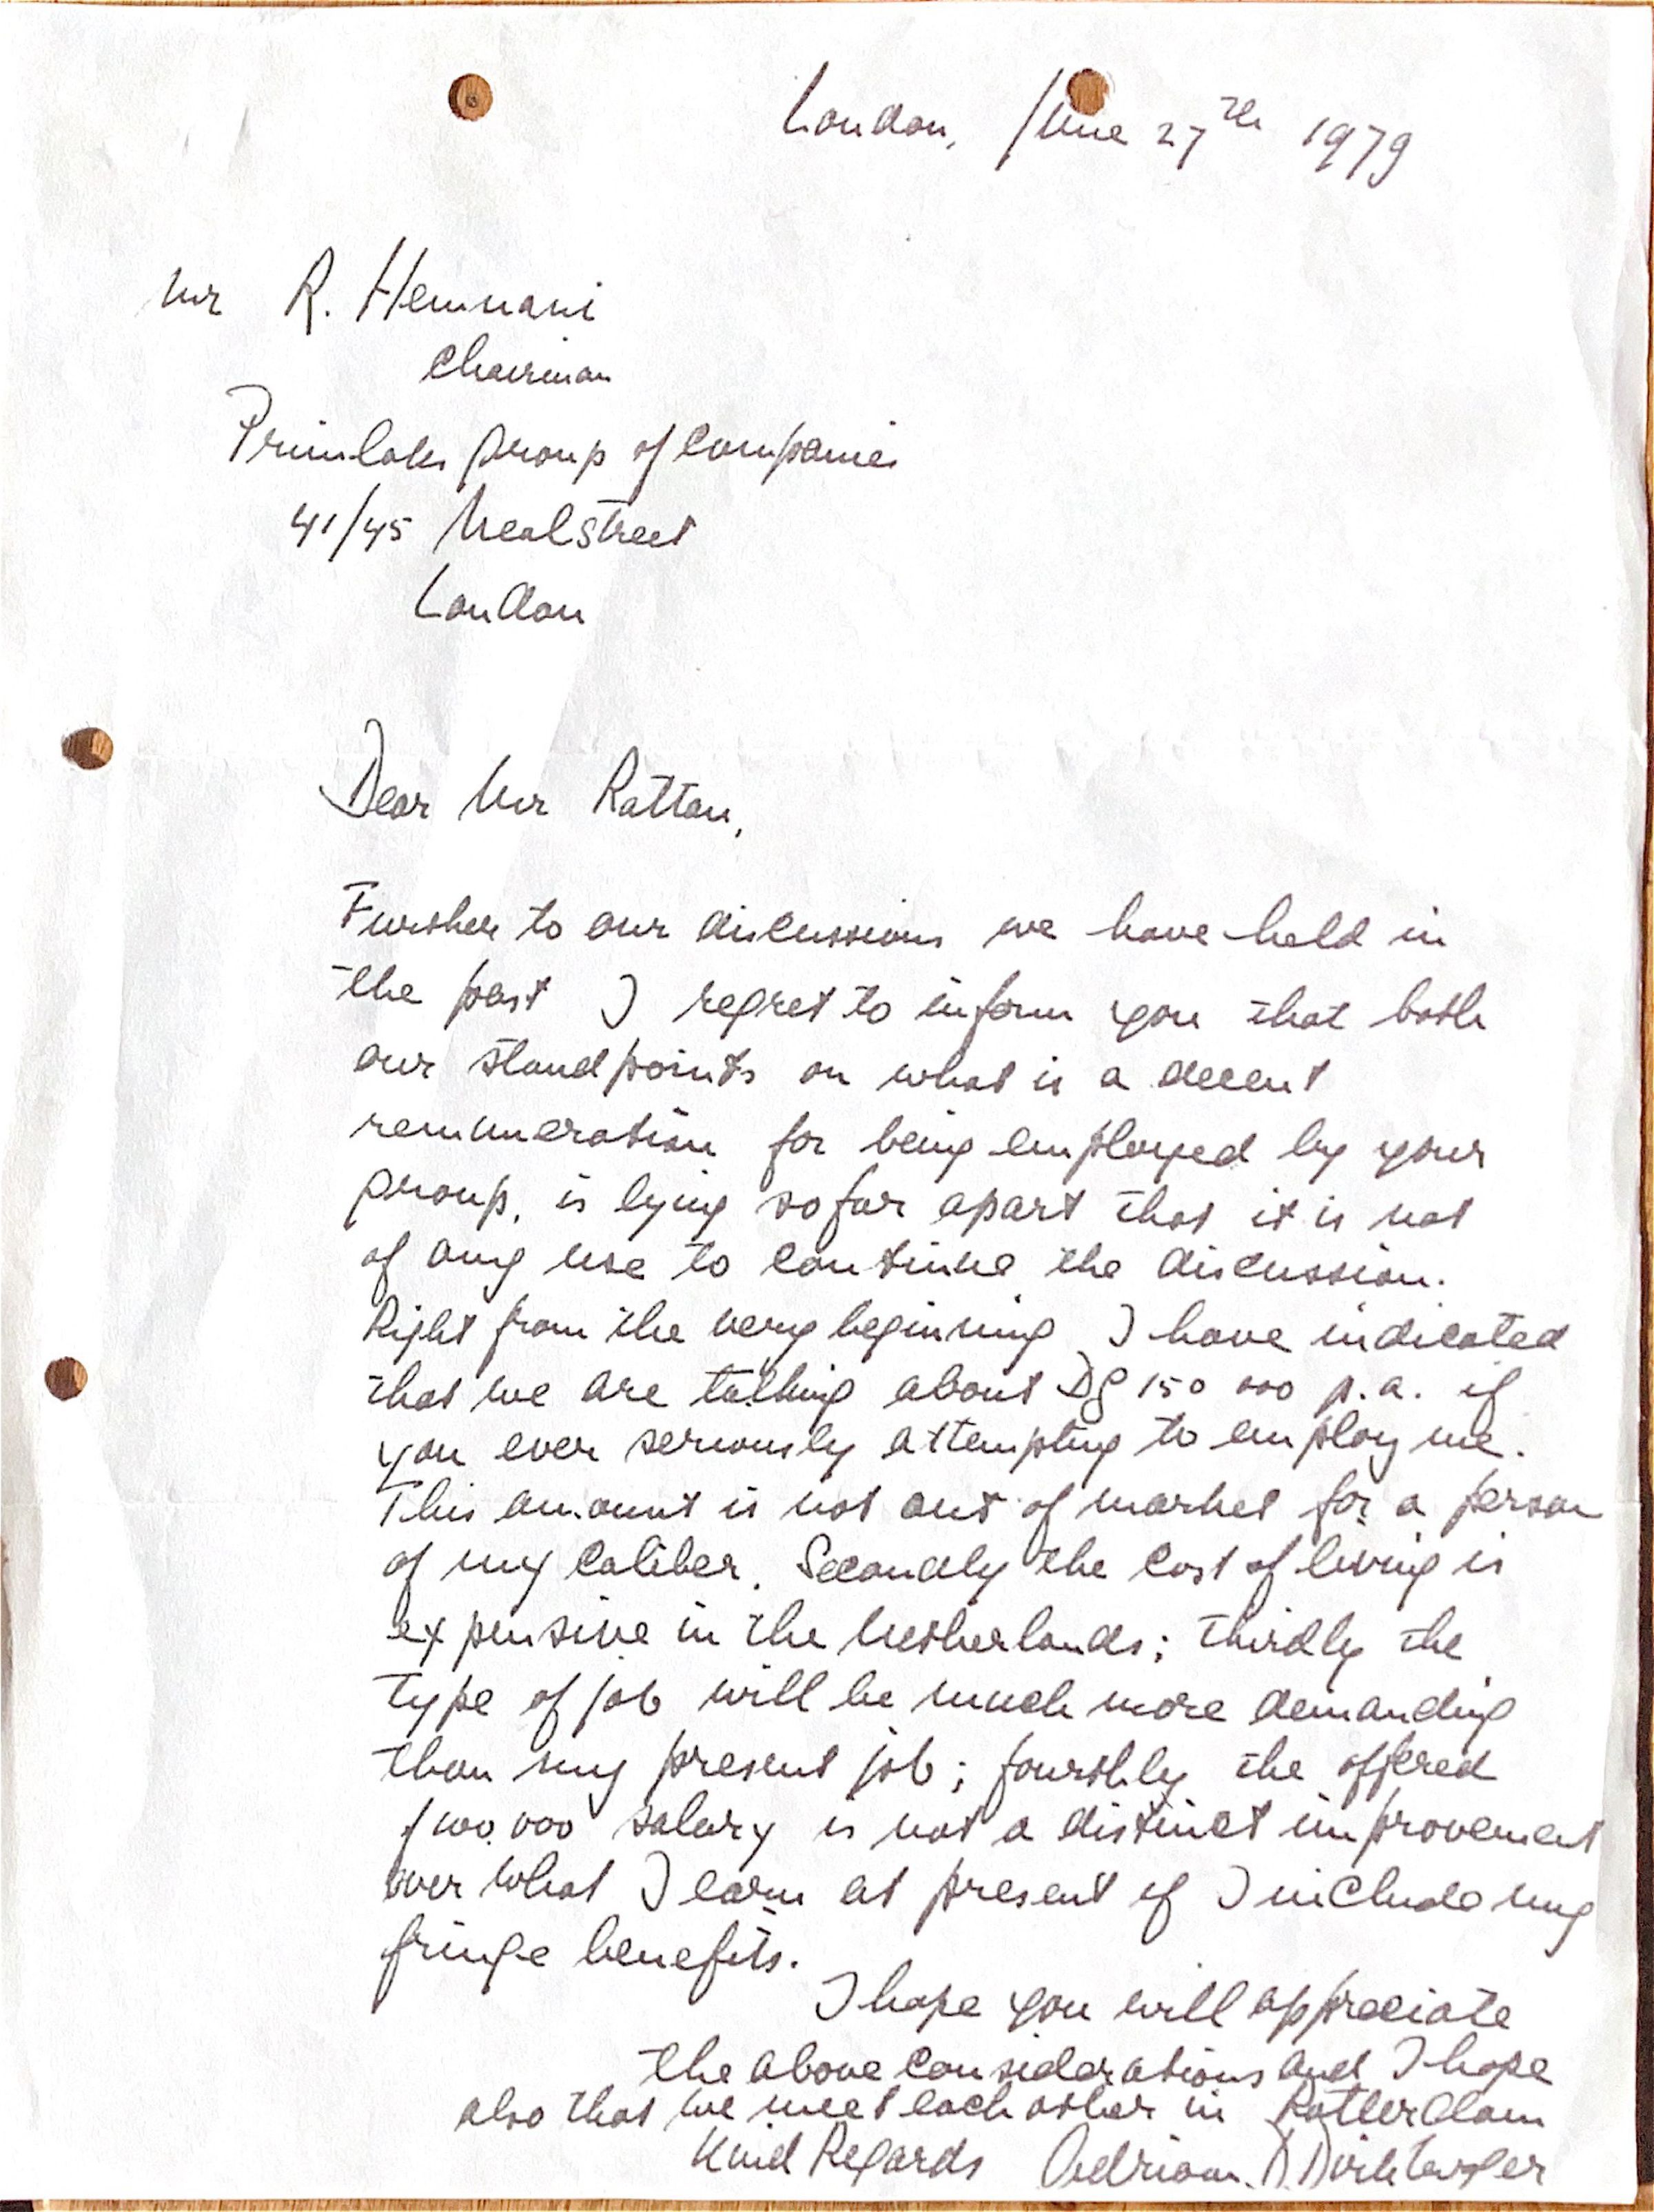 London, June 27th 1979
Mr R. Hemnani
Chairman
Primlaks group of Companies
41/45 Neal Street
London
Dear Mr Rattan,
Further to our discussions we have held in
the past I regret to inform you that both
our standpoints on what is a decent
remuneration for being employed by your
group, is lying so far apart that it is not
of any use to continue the discussion.
Right from the very beginning I have indicated
that we are talking about Dg 150 000 p.a. if
you ever seriously attempting to employ me.
This amount is not out of market for a person
of my caliber. Secondly the cost of living is
expensive in the Netherlands; thirdly the
type of job will be much more demanding
than my present job; fourthly the offered
f 100.000 salary is not a distinct improvement
over what I earn at present if I include my
fringe benefits.
I hope you will appreciate
the above considerations and I hope
also that we meet each other in Rotterdam
Kind Regards Adriaan. D.